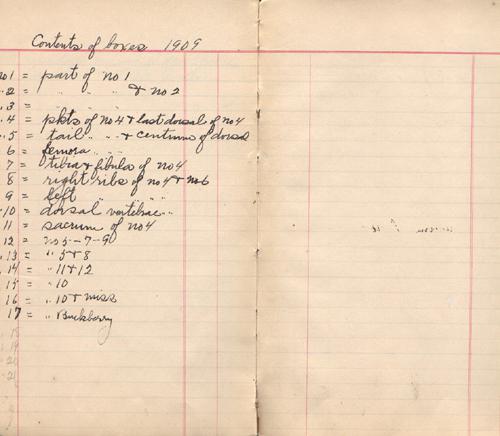 Contents of boxes 1909
no 1 = part of no 1
.. 2 = " " " " & no 2
.. 3 = " " "
.. 4 = pkts of no 4 & last dorsal of no 4
.. 5 = tail " " & centrums of dorsal
6 = femora " " "
7 = tibia & fibula of no 4
8 = right ribs of no 4 & no 6
9 = left " " "
10 = dorsal vertebrae " "
11 = sacrum of no 4
12 = no 5-7-9
13 = " 5 & 8
14 = " 11 & 12
15 = " 10
16 = " 10 & miss
17 = " Buckberry
18
19
20
21